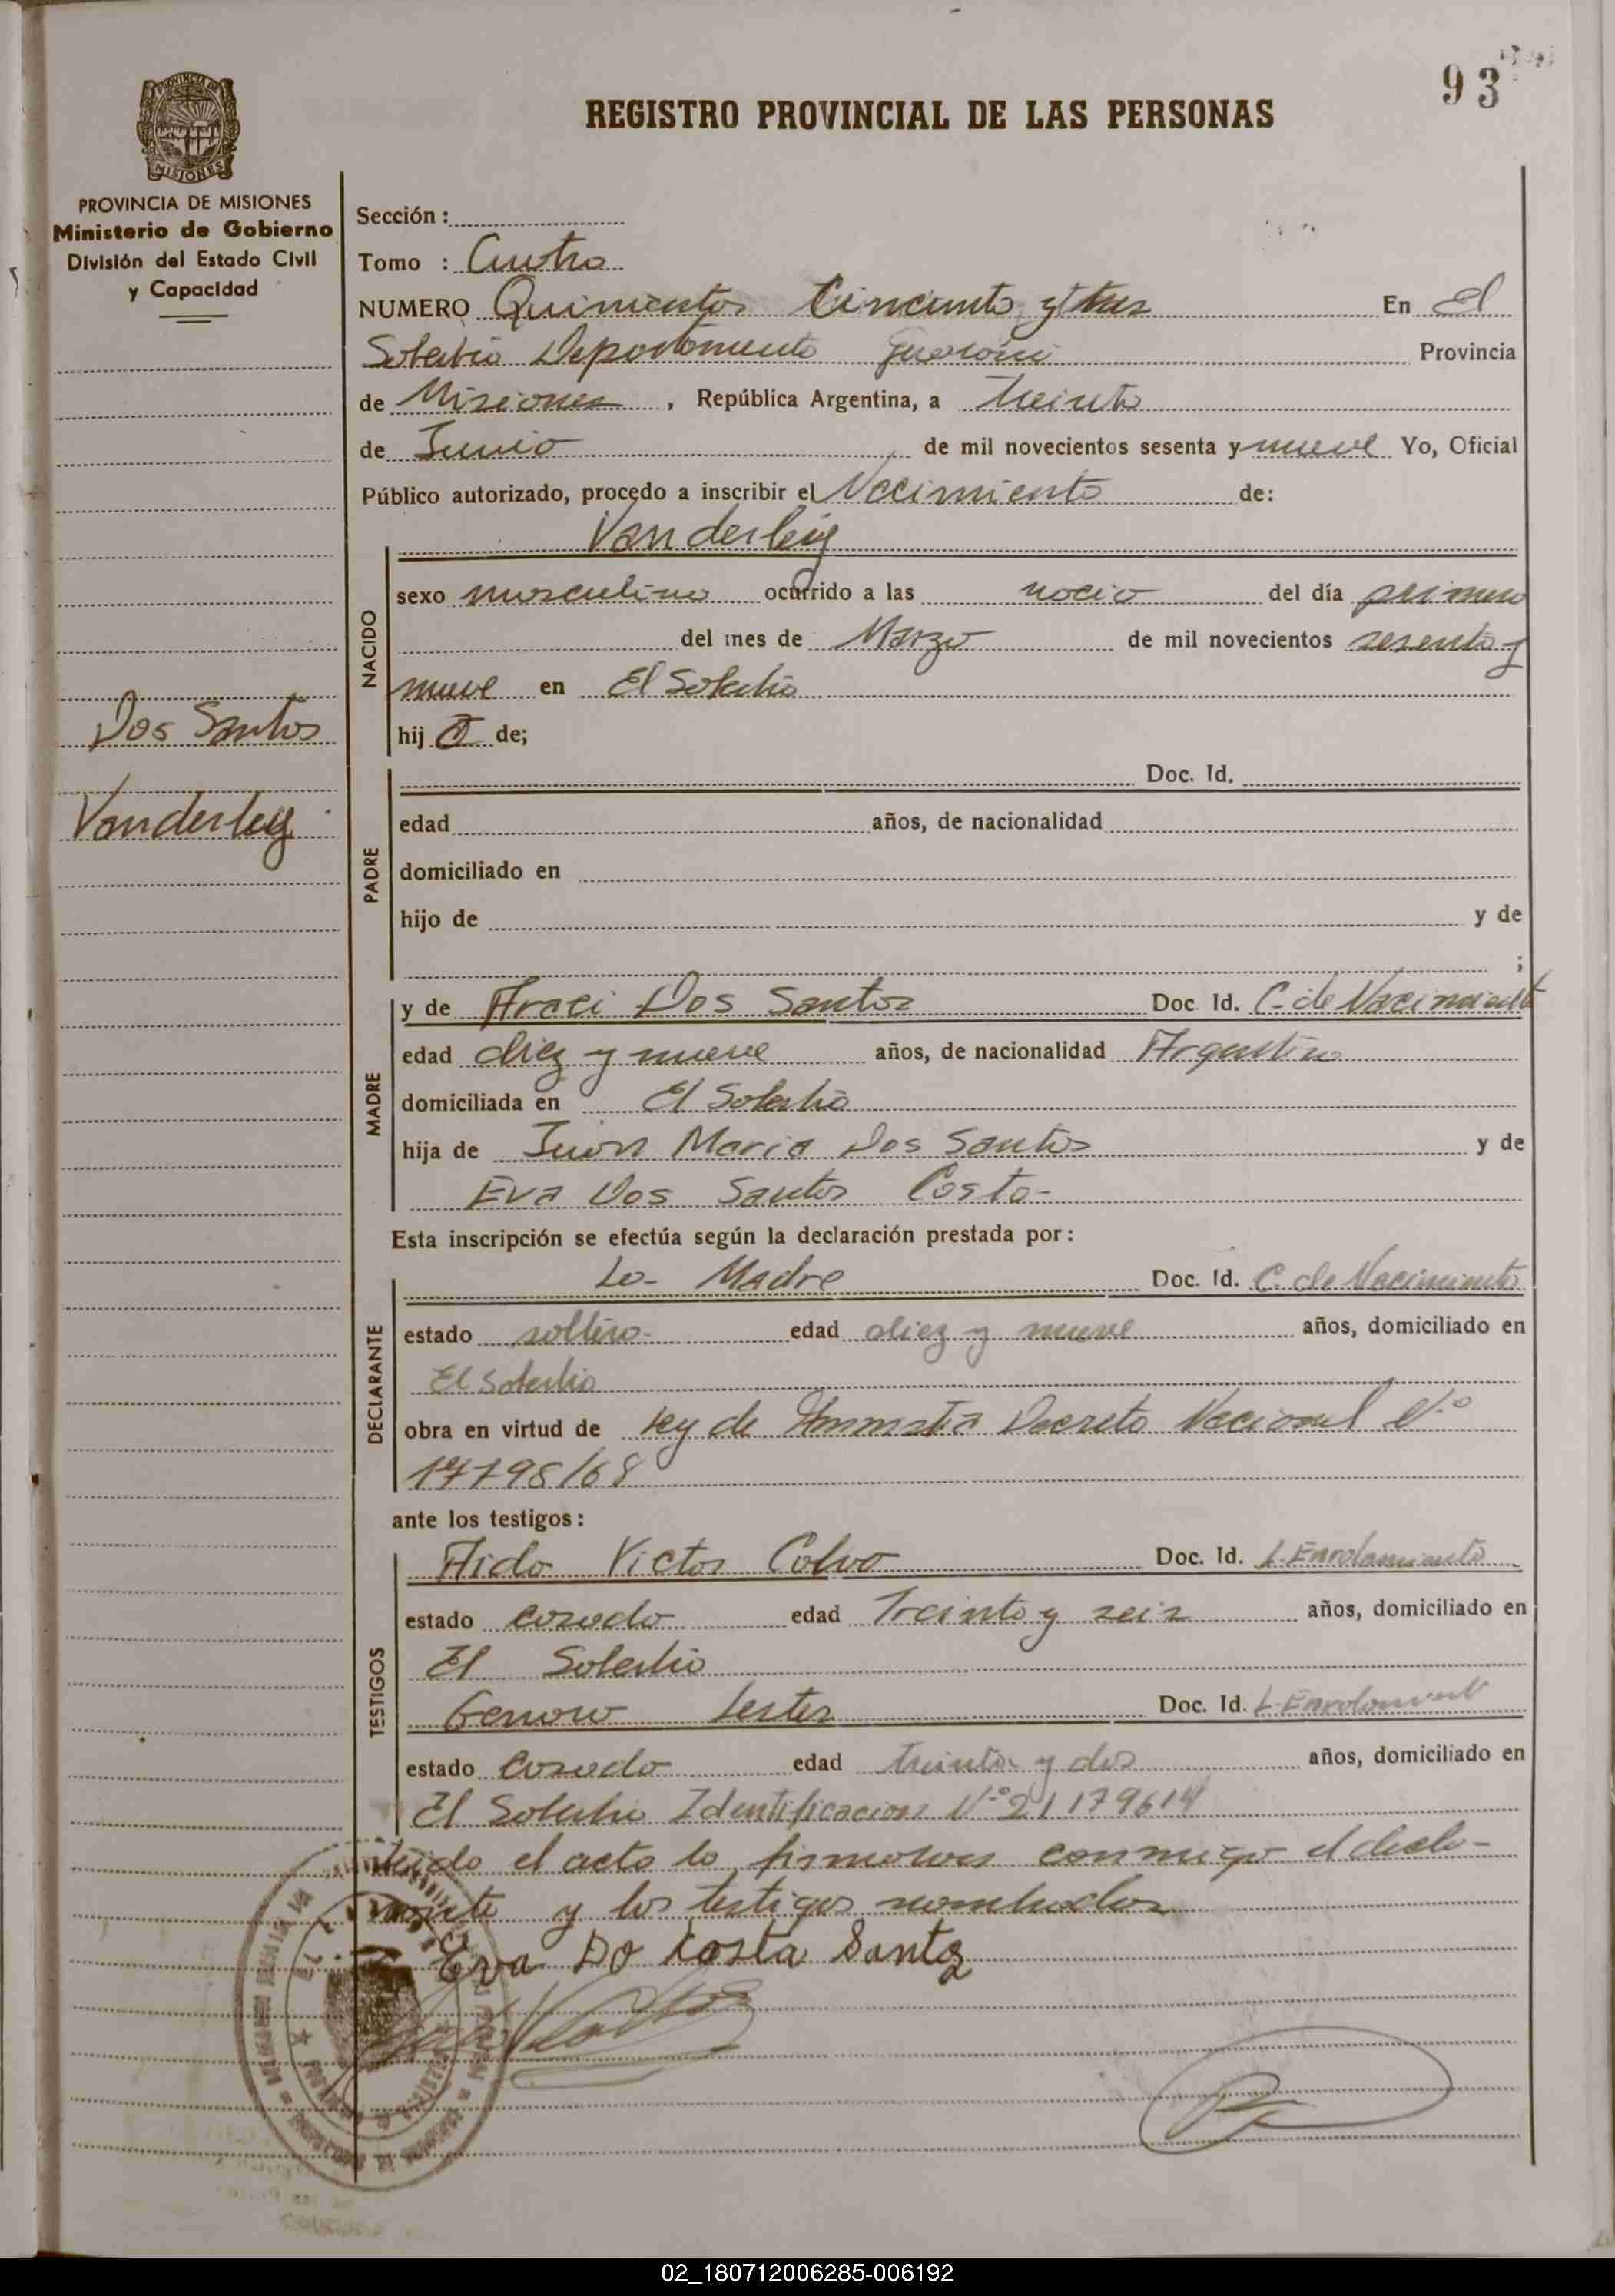 93
REGISTRO PROVINCIAL DE LAS PERSONAS
PROVINCIA DE MISIONES
MISIONES
PROVINCIA DE MISIONES
Ministerio de Gobierno
División del Estado Civil
y Capacidad
Sección :
Tomo : Cuatro
NUMERO Quinientos Cincuenta y tres En El
Soberbio Departamento Guaraní Provincia
de Misiones , República Argentina, a treinta
de Junio de mil novecientos sesenta y nueve Yo, Oficial
Público autorizado, procedo a inscribir el Nacimiento de:
Vanderley
NACIDO
sexo masculino ocurrido a las nocio del día primero
del mes de Marzo de mil novecientos sesenta y
nueve en El Soberbio
hij o de;
Dos Santos
Vanderley
PADRE
Doc. Id.
edad años, de nacionalidad
domiciliado en
hijo de y de
;
MADRE
y de Araci Dos Santos Doc. Id. C. de Nacimiento
edad diez y nueve años, de nacionalidad Argentina
domiciliada en El Soberbio
hija de Juan Maria Dos Santos y de
Eva Dos Santos Costa-
Esta inscripción se efectúa según la declaración prestada por:
DECLARANTE
La Madre Doc. Id. C. de Nacimiento
estado soltera edad diez y nueve años, domiciliado en
El Soberbio
obra en virtud de Ley de Amnistia Decreto Nacional N.º
17798/68
ante los testigos:
TESTIGOS
Aido Victor Calvo Doc. Id. L. Enrolamiento
estado casado edad Treinta y seis años, domiciliado en
El Soberbio
Genaro Doc. Id. L. Enrolamient
estado casado edad treinta y dos años, domiciliado en
El Soberbio Identificacion N.º 21179614
leido el acto lo firmaron conmigo el decla-
rante y los testigos nombrados
Eva Do Kosta Santos
02_180712006285-006192